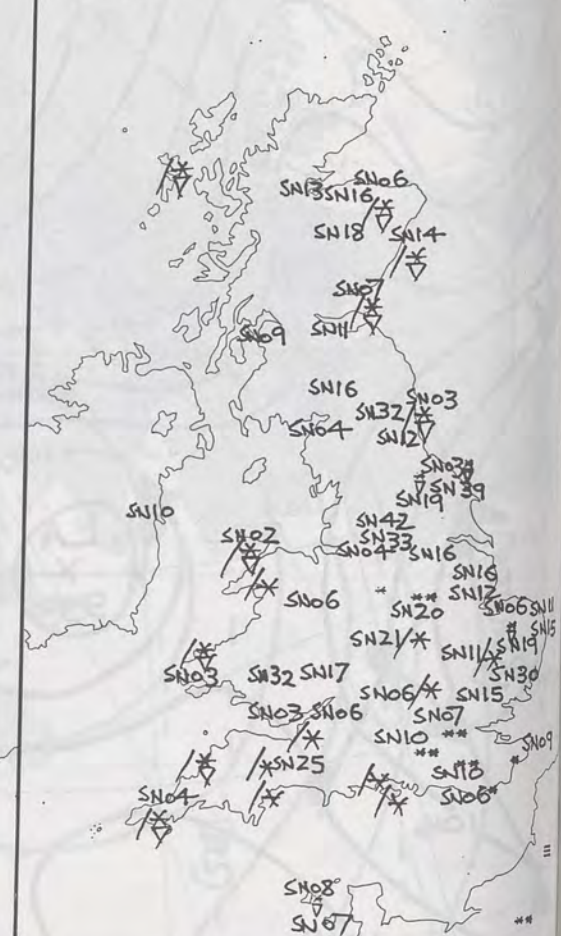 SN06
SN13 SN16
SN18
SN14
SN07
SN11
SN09
SN16
SN03
SN32
SN04
SN12
SN03
SN39
SN19
SN10
SN42
SN33
SN04
SN16
SN02
SN16
SN12
SN06
SN20
SN06 SN11
SN15
SN21
SN11
SN19
SN03
SN32 SN17
SN30
SN06
SN15
SN03 SN06
SN07
SN10
SN09
SN25
SN18
SN04
SN06
SN08
SN07